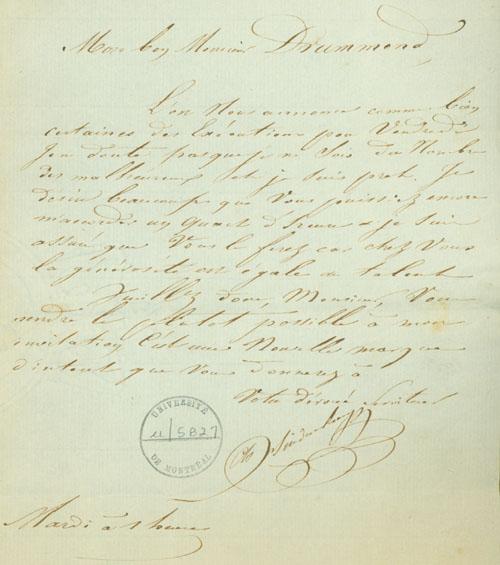 Mon bon Monsieur Drummond,
L'on nous annonce comme bien
certaines des Exécutions pour Vendredi
Je ne doute pas que je ne sois du Nombre
des malheureux et je suis prêt. Je
désire beaucoup que Vous puissiez encore
m'accorder un quart d'heure & je suis
assuré que Vous le ferez car chez Vous
la générosité est égale au talent
Veuillez donc, Monsieur, Vous
rendre le plutot possible à mon
invitation. C'est une Nouvelle marque
d'intérêt que Vous donnerez à
Votre dévoué Serviteur
UNIVERSITÉ
u/5827
DE MONTRÉAL
Mardi à 1 heure